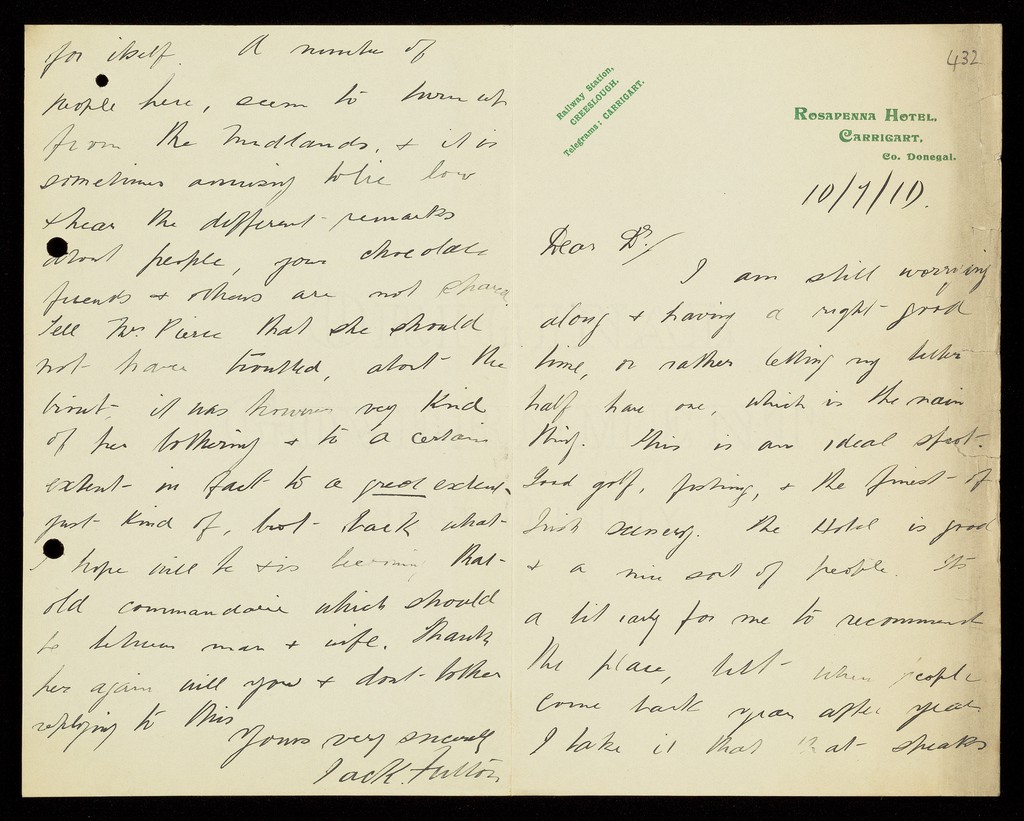 432
Railway Station,
CREESLOUGH.
Telegrams: CARRIGART.
ROSAPENNA HOTEL,
CARRIGART,
Co. Donegal.
10/7/10.
Dear Dr/
I am still worrying
along & having a right good
time, or rather letting my better
half have one, which is the main
thing. This is an ideal spot.
Good golf, fishing, & the finest of
Irish scenery. The Hotel is good
& a nice sort of people. Its
a bit early for me to recommend
the place, but when people
come back year after year
I take it that that speaks
for itself. A number of
people here, seem to turn up
from the Midlands, & it is
sometimes amusing to lie low
& hear the different remarks
about people, your chocolate
friends & others are not
Tell Mrs Pierce that she should
not have troubled, about the
it was however very kind
of her bothering & to a certain
extent in fact to a great extent
just kind of, but back what
I hope will be & is becoming that
old which should
be between man & wife. Thank
her again will you & dont bother
replying to this
Yours very sincerely
Jack Fulton